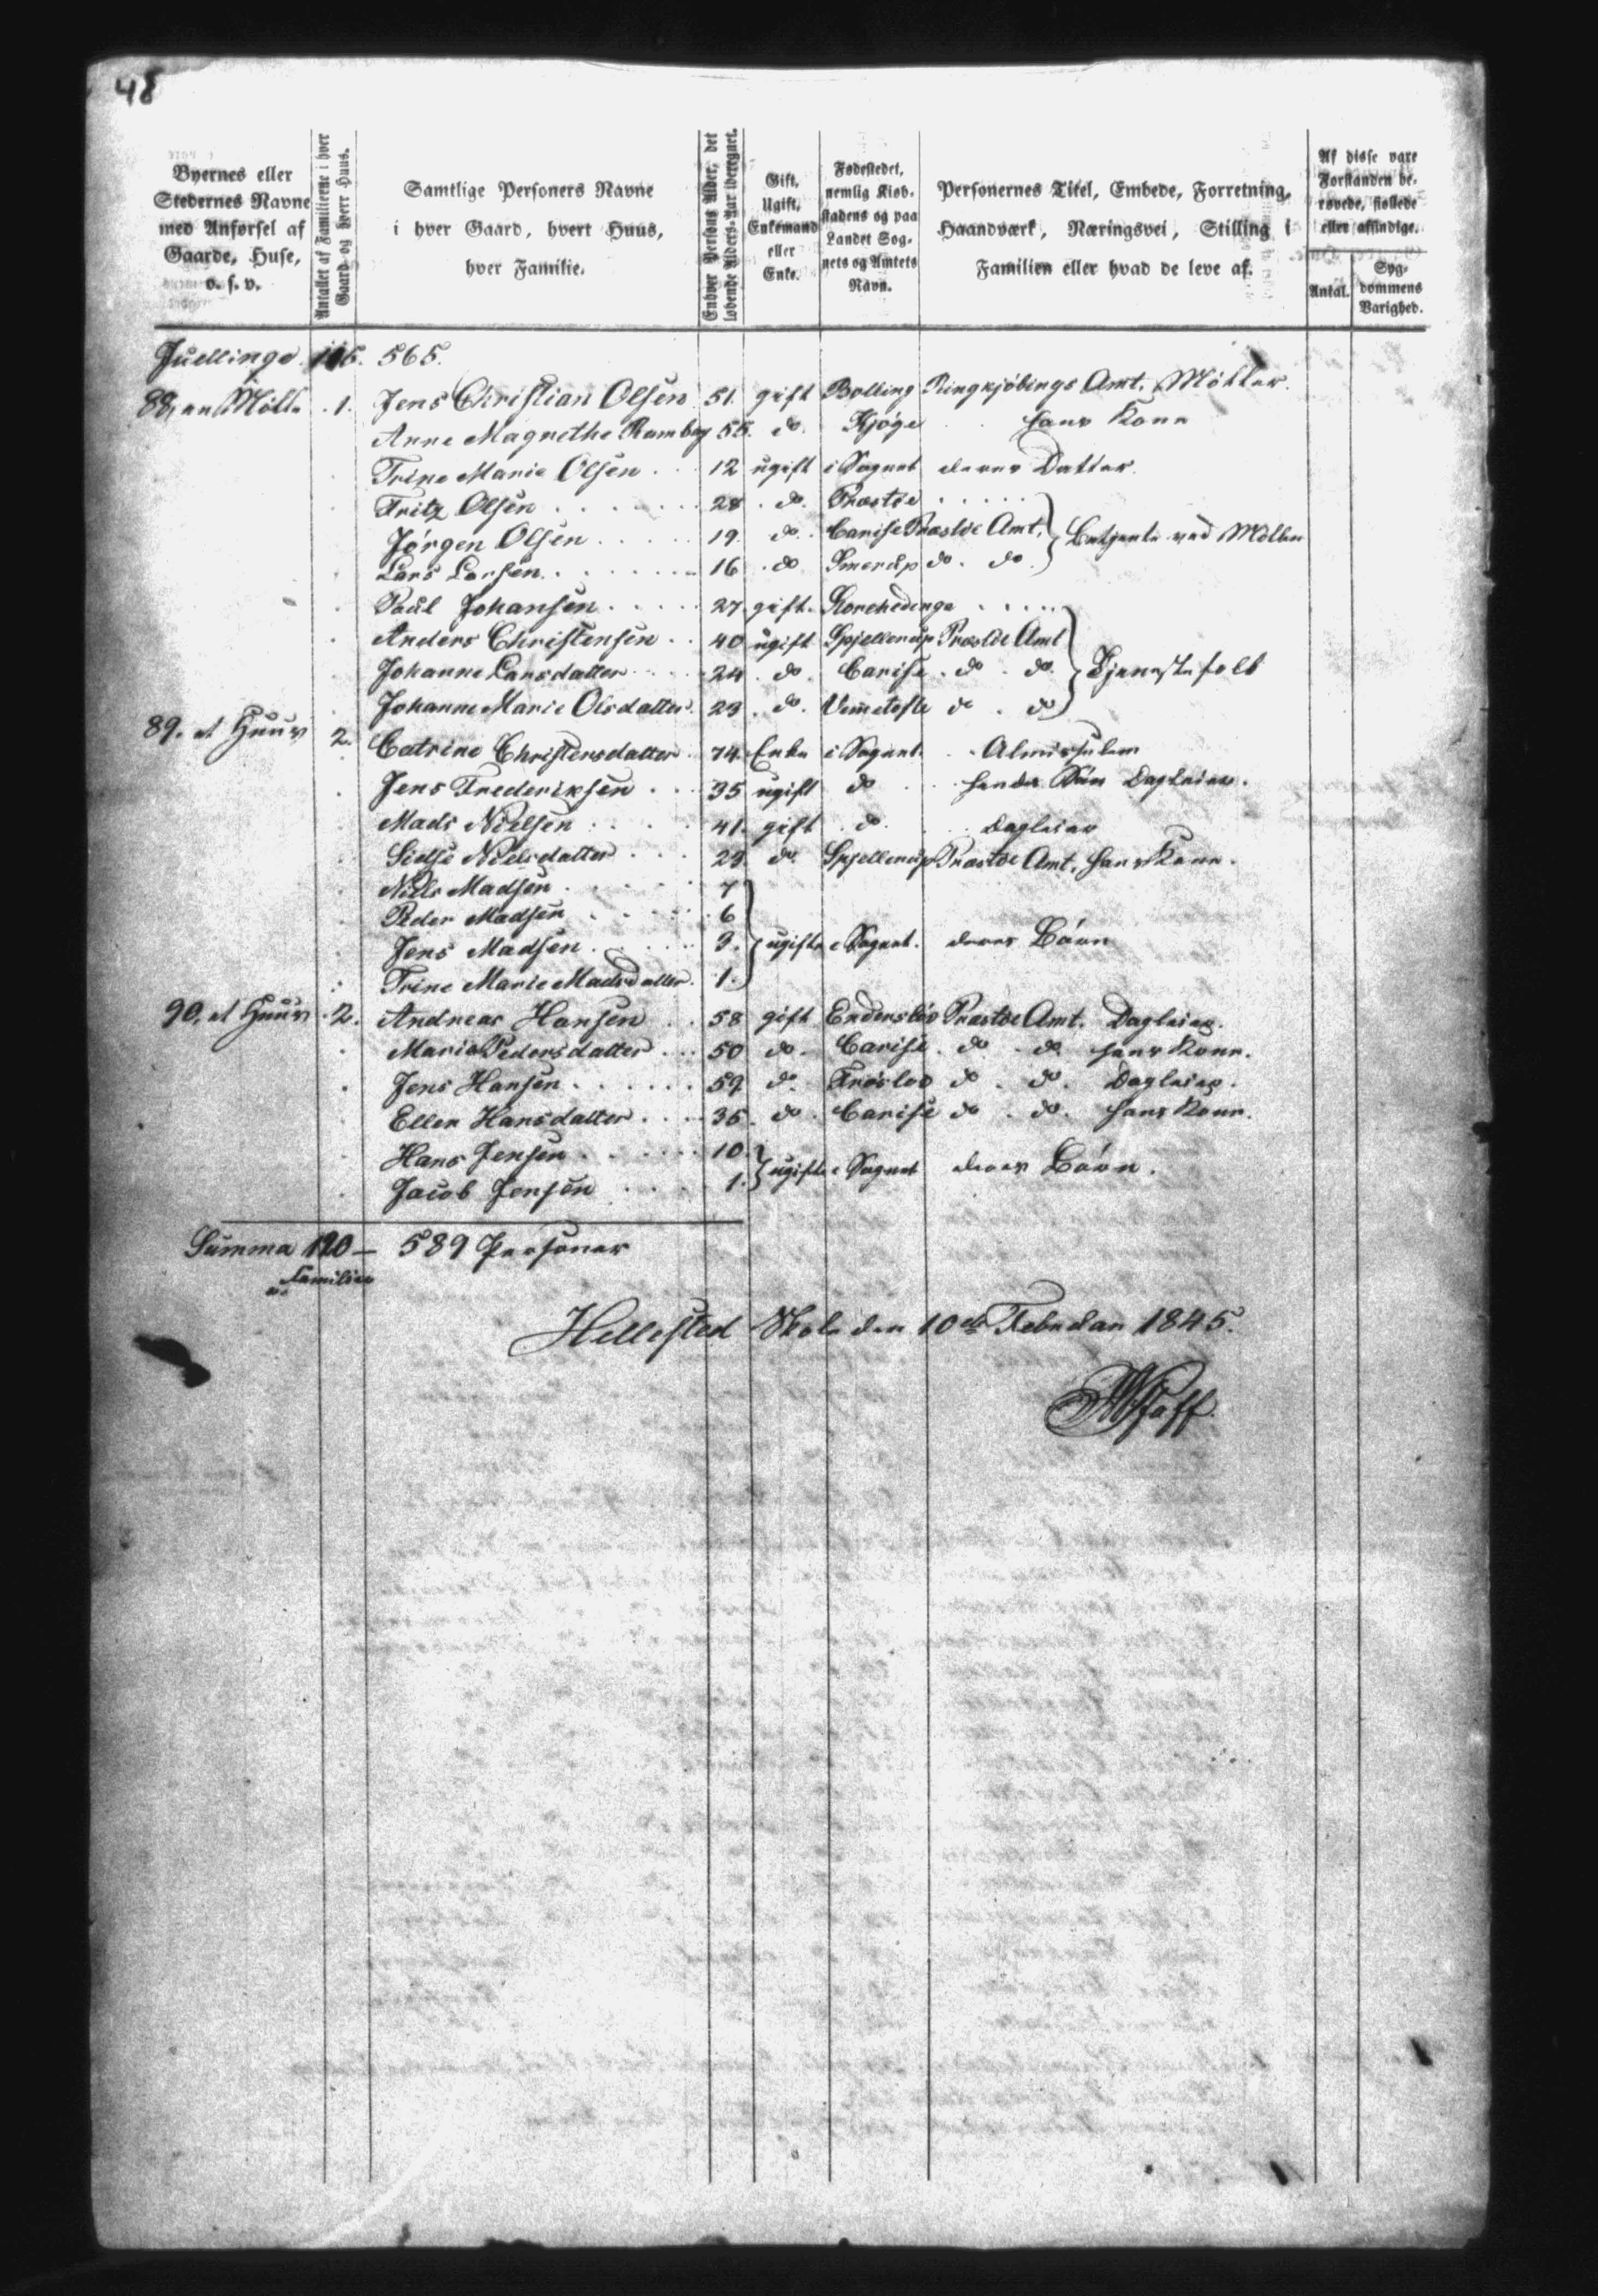 48
Byernes eller Stedernes Navne med Anførsel af Gaarde, Huse, o. s. v.
Antallet af Familierne i hver Gaard og hvert Huus.
Samtlige Personers Navne i hver Gaard, hvert Huus, hver Familie.
Enhver Persons Alder, det løbende Alders-Aar iberegnet.
Gift, Ugift, Enkemand eller Enke.
Fødestedet, nemlig Kiøbstadens og paa Landet Sognets og Amtets Navn.
Personernes Titel, Embede, Forretning, Haandværk, Næringsvei, Stilling i Familien eller hvad de leve af.
Af disse vare Forstanden berøvede, fiollede eller afsindige.
Antal.
Sygdommens Varighed.
Juellinge 115. 565.
88, en Mølle .1. Jens Christian Olsen 51. gift Bolling Ringkjøbings Amt. Møller.
Anne Magrethe Ramberg 55. do. Kjøge hans Kone
Trine Marie Olsen 12 ugift i Sognet deres Datter.
Fritz Olsen 28 do. Præstøe
Jørgen Olsen 19 do. Carise Præstøe Amt. } Betjente ved Møllen
Lars Larsen 16 do Smerup do. do.
Paul Johansen 27. gift. Storehedinge
Anders Christensen 40 ugift Spjellerup Præstøe Amt
Johanne Larsdatter 24 do. Carise do. do. } Tjenestefolk
Johanne Marie Olsdatter 23. do. Vemetofte do. do
89. et Huus 2. Catrine Christensdatter 74. Enke i Sognet Almisselem
Jens Frederiksen 35 ugift do hendes Søn Dagleier.
Mads Nielsen 41. gift do. Dagleier
Sidse Nielsdatter 29. do. Spjellerup Præstøe Amt. hans Kone.
Niels Madsen 7
Peder Madsen 6
Jens Madsen 3. } ugifte i Sognet. deres Børn
Trine Marie Madsdatter. 1.
90, et Huus .2. Andreas Hansen 58 gift Enderslöv Præstøe Amt. Dagleier.
Marie Pedersdatter 50 do. Carise. do. do. hans Kone.
Jens Hansen 59. do. Frøslev do. do. Dagleier.
Ellen Hansdatter 36. do. Carise do. do. hans Kone.
Hans Jensen 10.
Jacob Jensen 1. } ugifte i Sognet deres Børn.
Summa 120 — 589 Personer
Familier
Hellested Skole den 10de Februar 1845.
Pfaff.